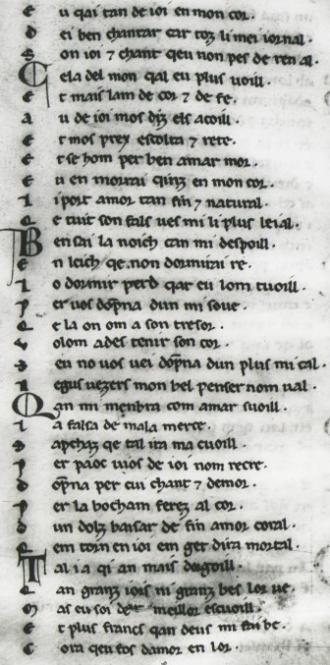 e u qai tan de ioi en mon cor.
d ei ben chantar car toz li mei iornal.
s on ioi ⁊ chant qeu non pes de ren al.
C ela del mon qal eu plus uoill.
e t mais lam de cor ⁊ de fe.
a u de ioi mos diz els acoill.
e t mos prex escolta ⁊ rete.
e t se hom per ben amar mor.
e u en morrai quinz en mon cor.
l i port amor tan fin ⁊ natural.
q e tuit son fals ues mi li plus leial.
B en sai la noich can mi despoill.
e n leich qe non dormirai re.
l o dormir perd qar eu lom tuoill.
p er uos dopna dun mi soue.
q e la on om a son tresor.
u olom ades tenir son cor.
s eu no uos uei dopna dun plus mi cal.
n egus uezers mon bel penser nom ual.
Q an mi menbra com amar suoill.
l a falsa de mala merce.
s apchaz qe tal ira ma cuoill.
p er paoc uios de ioi nom recre.
d opna per cui chant ⁊ demor.
p er la bocham ferez al cor.
d un dolz baisar de fin amor coral.
q em torn en ioi em get dira mortal.
T al ia qi an mais dorgoill.
q an granz iois ni granz bes lor ue.
m as eu soi de meillor escuoill.
e t plus francs qan deus mi fai be.
c ora qeu fos damor en lor.